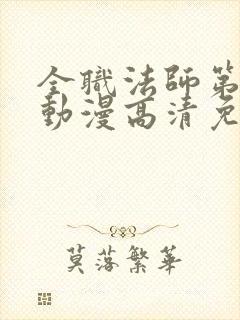 全職法師第
動漫高清免
莫落繁華